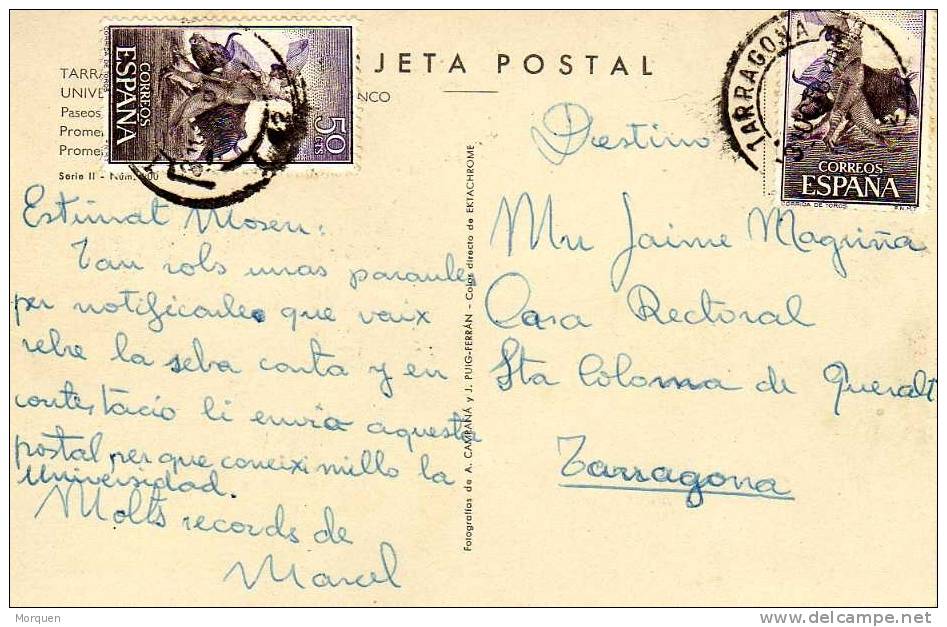 TARJETA POSTAL
TARRA
UNIVE NCO
Paseos
Prome
Prome
Serie II - Núm. 00
CORRIDA DE TOROS
CORREOS
ESPAÑA
50 CTS
TARRAGONA
CORREOS
ESPAÑA
CORRIDA DE TOROS F.N.M.T.
Estimat Mosen:
Tan sols unas paraules
per notificarles que vaix
rebre la seba carta y en
contestacio li envio aquesta
postal per que coneixi millo la
Universidad.
Molts records de
Marcel
Fotografías de A. CAMPAÑÁ y J. PUIG-FERRÁN - Color directo de EKTACHROME
Destino
Mn Jaime Magriña
Casa Rectoral
Sta Coloma de Queralt
Tarragona
Morquen
delcampe.net